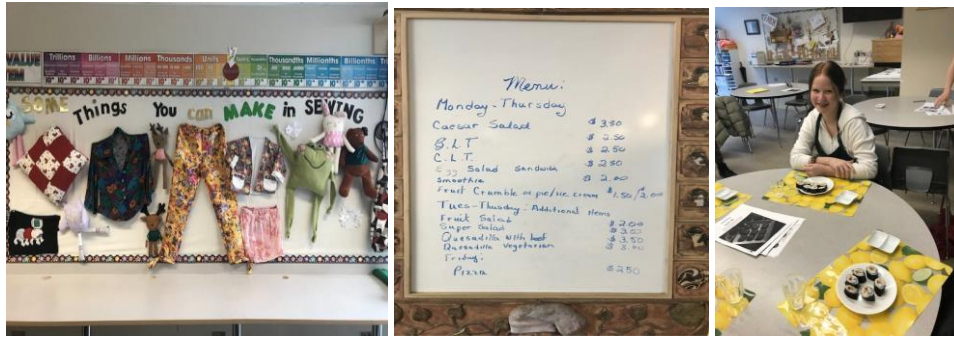 VALUE
Trillions Billions Millions Thousands Units Thousandths Millionths Billionths
SOME Things You can MAKE in SEWING
Menu:
Monday - Thursday
Caesar Salad $3.50
B.L.T. $2.50
C.L.T. $2.50
Egg Salad Sandwich $2.50
Smoothie $2.00
Fruit Crumble or pie/ice cream $1.50/2.00
Tues-Thusday: Additional items
Fruit Salad $2.00
Super Salad $3.00
Quesadilla with beef $3.50
Quesadilla Vegetarian $3.00
Friday:
Pizza $2.50